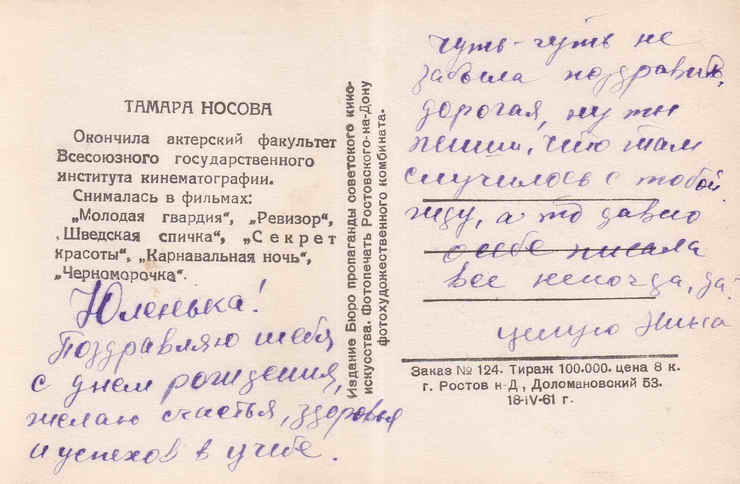 ТАМАРА НОСОВА
Окончила актерский факультет
Всесоюзного государственного
института кинематографии.
Снималась в фильмах:
„Молодая гвардия“, „Ревизор“,
„Шведская спичка“, „Секрет
красоты“, „Карнавальная ночь“,
„Черноморочка“.
Юленька!
Поздравляю тебя
с днем рождения,
желаю счастья, здоровья
и успехов в учебе.
Издание Бюро пропаганды советского кино-
искусства. Фотопечать Ростовского-на-Дону
фотохудожественного комбината.
чуть-чуть не
забыла поздравить,
дорогая, ну ты
пиши, что там
случилось с тобой
жду, а то давно
о себе писала
все некогда, да?
целую Нина
Заказ № 124. Тираж 100.000. цена 8 к.
г. Ростов н-Д, Доломановский 53.
18-IV-61 г.